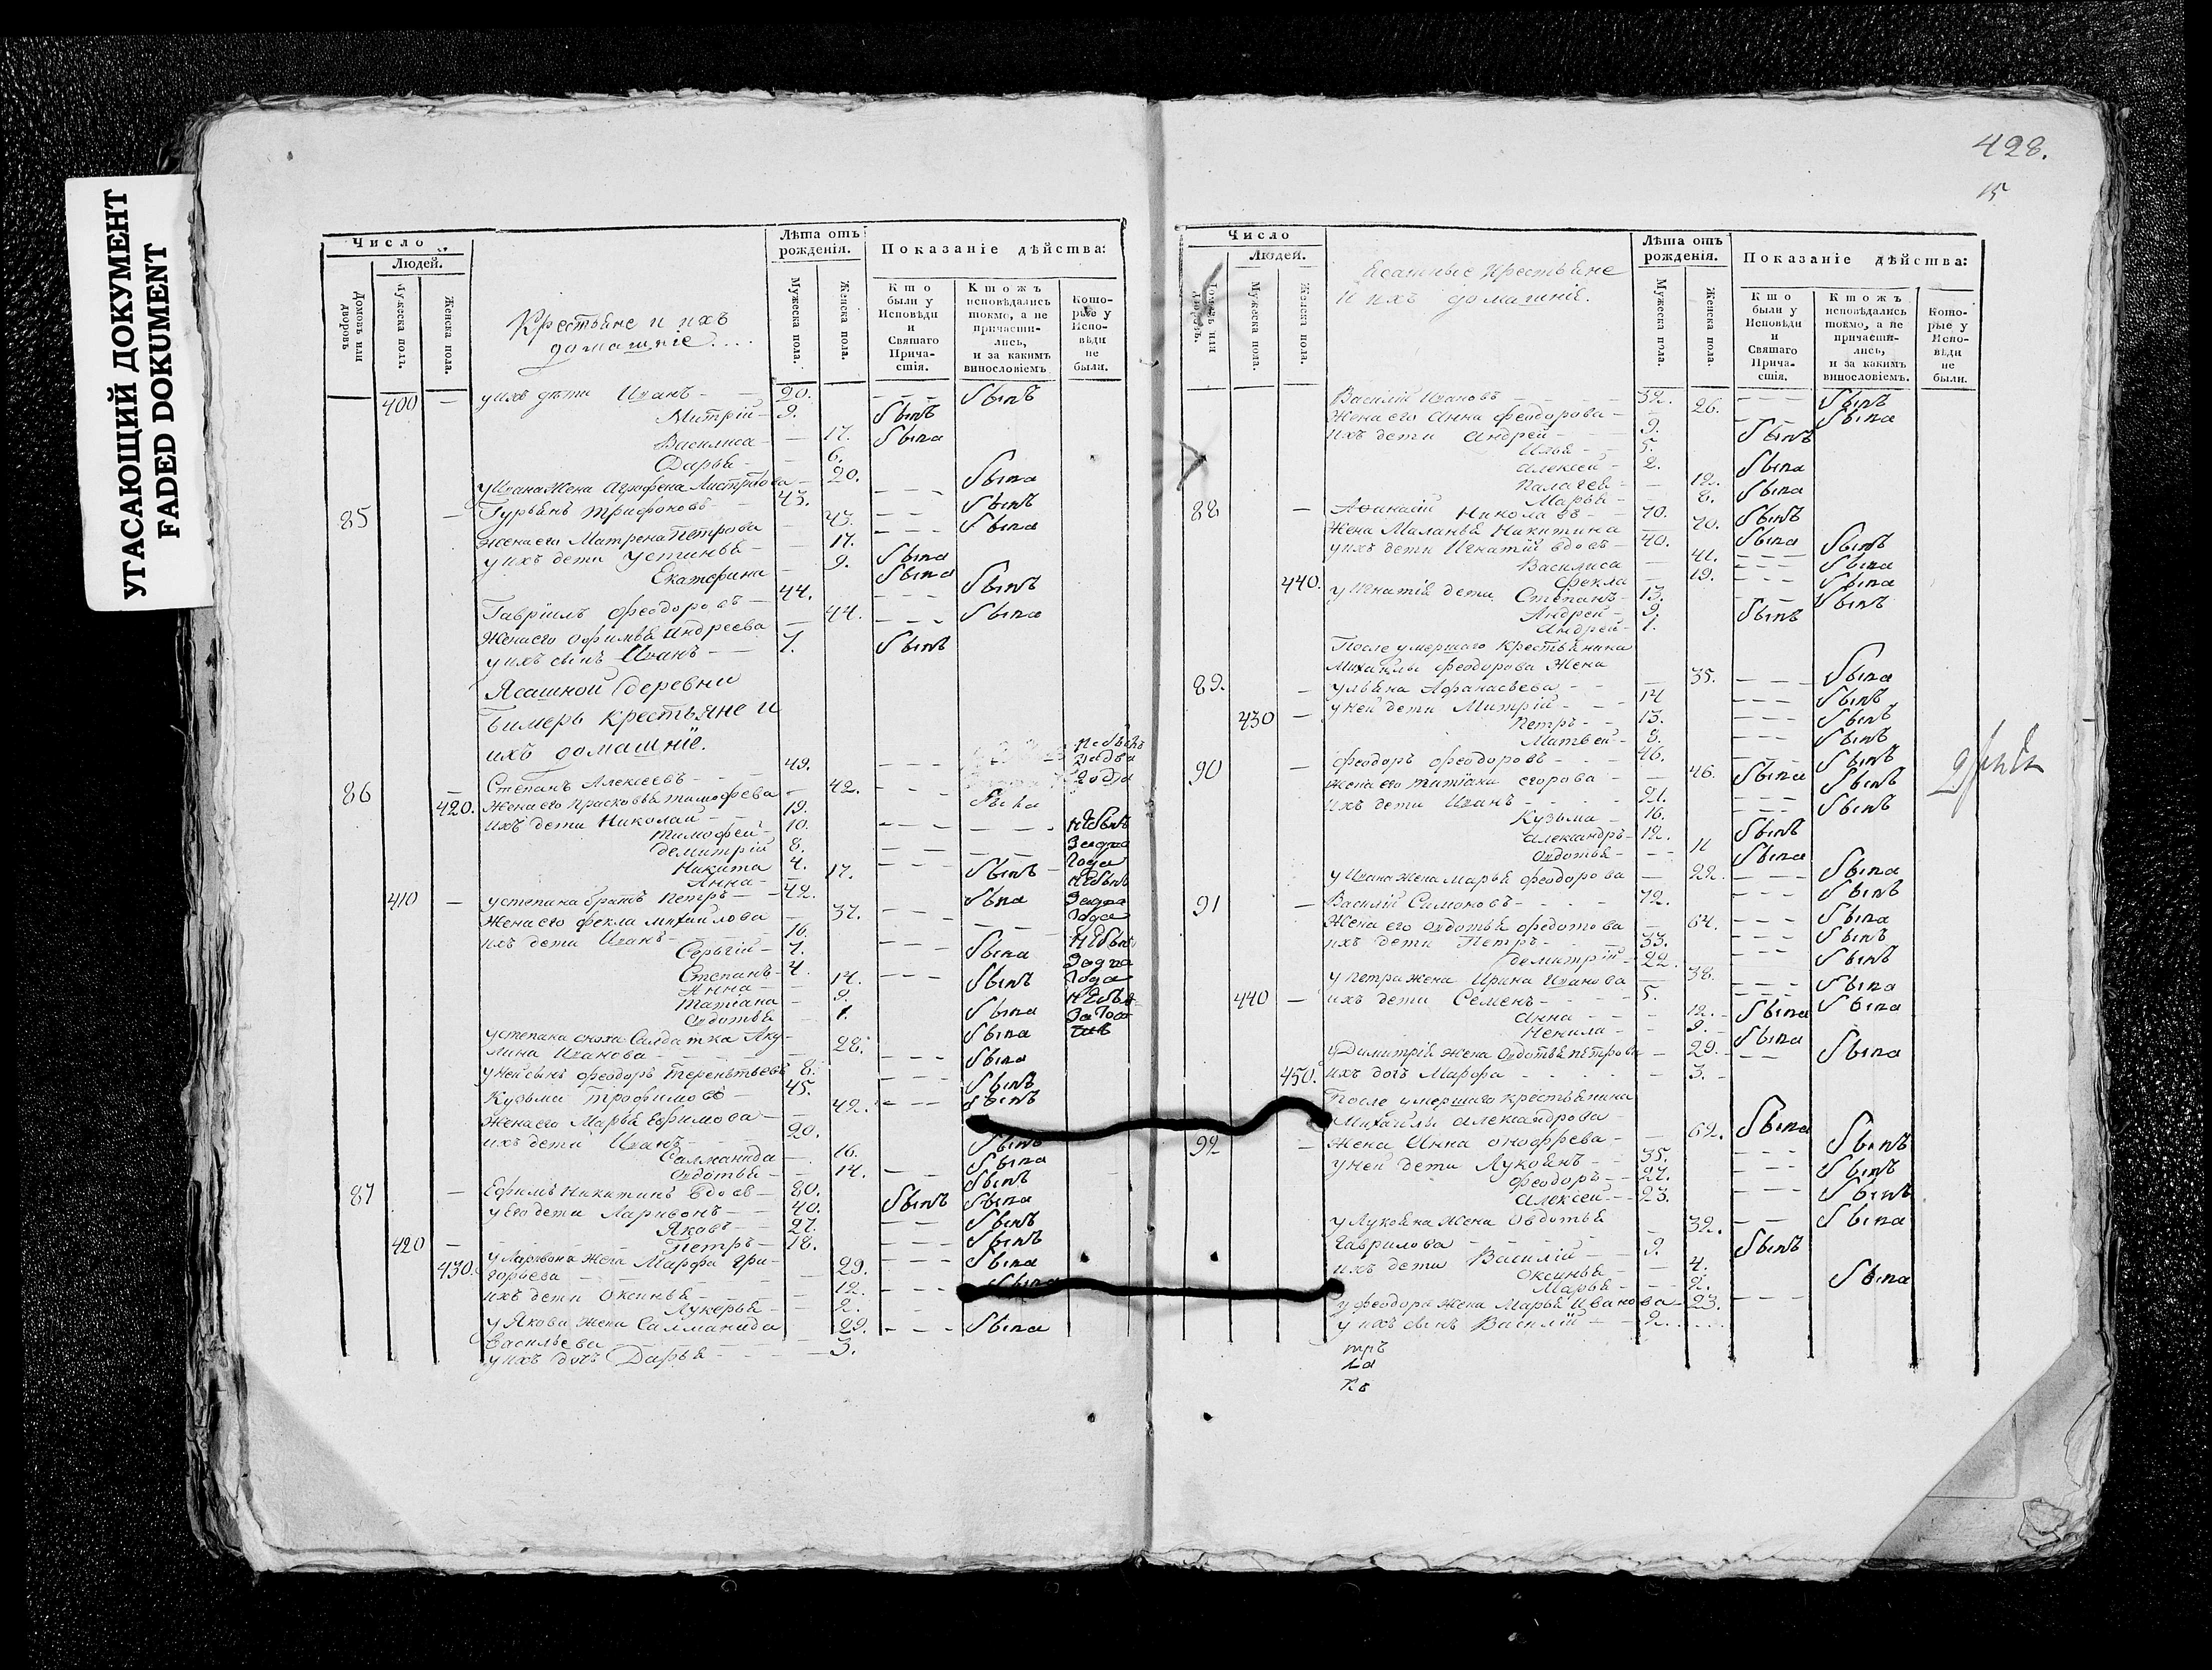 УГАСАЮЩИЙ ДОКУМЕНТ
FADED DOKUMENT
Число
Людей.
Домовъ или дворовъ
Мужеска полу.
Женска пола.
Крестьяне и ихъ
домашніе....
Лѣта отъ рожденія.
Мужеска пола.
Женска пола.
Показаніе дѣйства:
Кто были у Исповѣди и Святаго Причастія.
Ктожъ исповѣдались токмо, а не причастились, и за какимъ винословіемъ
Которые у Исповѣди не были.
400 — у ихъ дѣти Иванъ — 20. былъ
Митрій — 9. былъ
Василиса — 17. была
Дарья — 6.
у Ивана жена Аграфена 20. была
85 — Гурьянъ Трифоновъ 43. былъ
Жена его Матрена Петрова 43. была
у ихъ дети Устинья — 17. была
Екатерина — 9. была
Гавріилъ Феодоровъ — 44. былъ
Жена его Офимья Андреева 44. была
у ихъ сынъ Иванъ — 7. былъ
Ясашной деревни
крестьяне и
ихъ домашніе.
86 — Степанъ Алексеевъ 49.
420. Жена его Прасковья Тимофеева 42.
ихъ дети Николай 19.
Тимофей 10.
Демитрій 8.
Никита 4.
Анна — 17.
410 — у степана братъ Петръ — 42.
Жена его Фекла Михайлова 37.
ихъ дети Иванъ 16.
Сергій 7.
Степанъ 4.
Анна — 14.
Татіана — 9.
Овдотья 1.
у степана сноха Салдатка Аку-
лина Иванова 28.
у ней сынъ Феодоръ Терентьевъ 8.
Кузьма Трофимовъ 45.
Жена его Марья Ефимова 42.
ихъ дети Иванъ 20.
Салманида 16.
Овдотья 14.
87 — Ефимъ Никитинъ вдовъ — 80.
у его дети Ларивонъ 40.
Яковъ 27.
420 — Петръ 18.
430. у Ларивона жена Марфа Гри-
горьева 29.
ихъ дети Оксинья 12.
Лукерья 2.
у Якова жена Салманида
Васильева 22.
у ихъ дочь Дарья 3.
428.
15
Число
Людей.
Домовъ или дворовъ.
Мужеска пола.
Женска пола.
Ясашные крестьяне
и ихъ домашніе.
Лѣта отъ рожденія.
Мужеска пола.
Женска пола.
Показаніе дѣйства:
Кто были у Исповѣди и Святаго Причастія.
Ктожъ исповѣдались токмо, а не причастились, и за какимъ винословіемъ.
Которые у Исповѣди не были.
Василій Ивановъ 32. былъ
Жена его Анна Феодорова 26. была
ихъ дети Андрей 9. былъ
Илья 5.
Алексей 2.
Палагея 12. была
Марья 8. была
88 — Афанасій Николаевъ 70. былъ
Жена Маланья Никитина 70. была
у ихъ дети Игнатій вдовъ 40. былъ
Василиса 41. была
440. Фекла 19. была
у Игнатія дети Степанъ 13. былъ
Андрей 9. былъ
Андрей 1.
После умершаго Крестьянина
Михайлы Феодорова Жена
89. — Ульяна Афанасьева 35. была
430 — у ней дети Митрій 14 былъ
Петръ 13. былъ
Матвей 8. былъ
90 — Феодоръ Феодоровъ 46. былъ
Жена его Татіана Егорова 46. была
ихъ дети Иванъ 21. былъ
Кузьма 16. былъ
Александръ 12. былъ
Овдотья 11 была
у Ивана жена Марья Феодорова 22. была
91 — Василій Симоновъ 72. былъ
Жена его Овдотья Федотова 64. была
ихъ дети Петръ 33. былъ
Демитрій 22. былъ
у петра жена Ирина Иванова 38. была
440 — ихъ дети Семенъ 5.
Анна 12. была
Ненила 9. была
у Димитрія жена Овдотья Петрова 29. была
450. ихъ дочь Марфа 3.
После умершаго крестьянина
Михайлы Александрова
92 — Жена Анна Оноффрева 62. была
у ней дети Лукоянъ 35. былъ
Феодоръ 27. былъ
Алексей 23. былъ
у Лукояна Жена Овдотья
Гаврилова 32. была
ихъ дети Василій 9. былъ
Оксинья 4.
Марья 2.
у Феодора Жена Марья Иванова 23. была
у ихъ сынъ Василій 2.